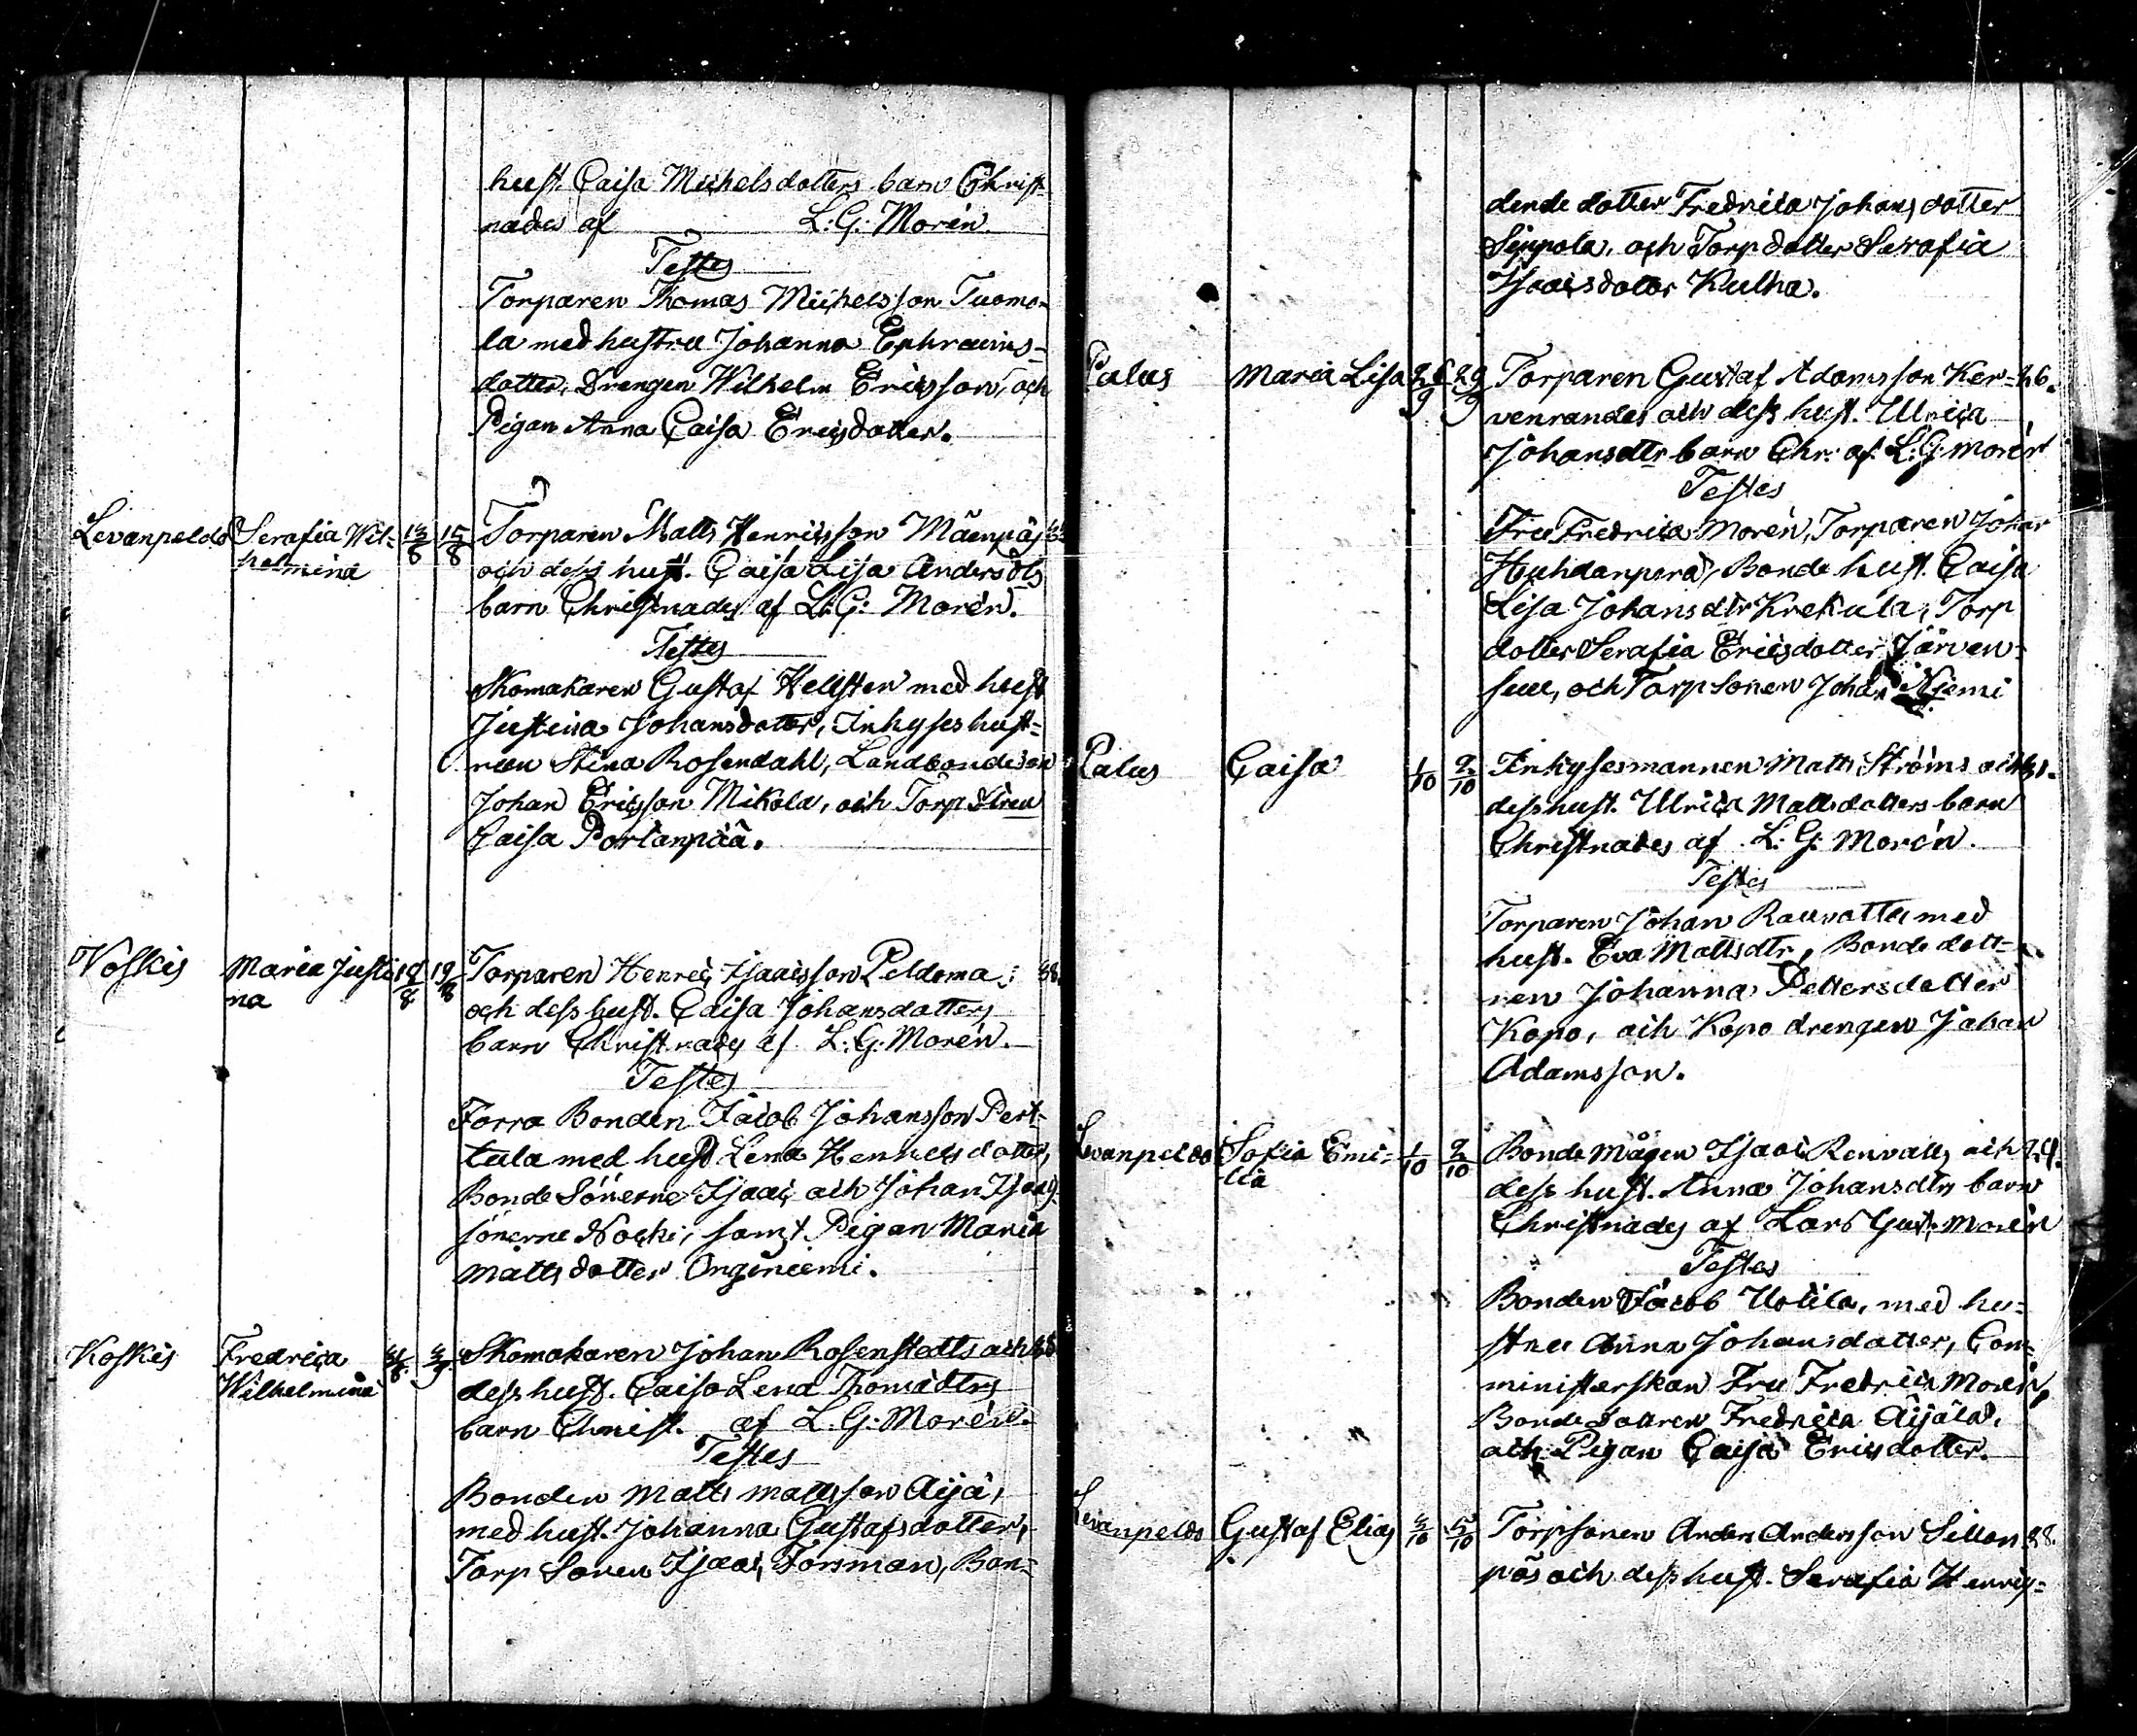 hust. Caisa Michelsdotters barn Christ-
nades af L: G: Morén.
Testes
Torparen Thomas Michelsson Tuomo-
la med hustru Johanna Ephraims-
dotter, Drengen Wilhelm Ericsson, och
Pigan Anna Caisa Ericsdotter.
Levanpeldo Serafia Wil- 13/8 15/8 Torparen Matts Henricsson Mäenpäs
helmina och dess hust. Caisa Lisa Andersdtrs
barn Christnades af L: G: Morén.
Testes
Skomakaren Gustaf Hellsten med hust
Justina Johansdotter, Inhyses hust-
run Stina Rosendahl, Landbondeson
Johan Ericsson Mikola, och Torp
Caisa Portanpää.
Koskis Maria Justi- 19/8 Torparen Henric Isaacsson Peldoma
na och dess hust. Caisa Johansdotters
barn Christnades af L: G: Morén.
Testes
Forra Bonden Jacob Johansson Pert-
tula med hust Lena Henricsdotter,
Bonde Sönerne Isaac och Johan Isaacs
sönerne Nocki, samt Pigan Maria
Mattsdotter Onginiemi.
Koskis Fredrica 31/8 3/9 Skomakaren Johan Rosenstedts och
Wilhelmina dess hust. Caisa Lena Thomædtrs
barn Christ. af L. G: Morén.
Testes
Bonden Matts Mattsson Aijä,
med hust. Johanna Gustafsdotter,
Torp Sonen Isaac Forsman, Bon-
dende dotter Fredrica Johansdotter
Seppola, och Torpdotter Serafia
Isaacsdotter Kulha.
Palus Maria Lisa 26/9 29/9 Torparen Gustaf Adamsson Ker- 26.
venrandes och dess hust. Ulrica
Johansdtrs barn Chr: af L: G: Morén
Testes
Fru Fredrica Morén, Torparen Johan
Huhdanperä, Bonde hust. Caisa
Lisa Johansdtr Krekula, Torp
dotter Serafia Ericsdotter Järven-
suu, och Torpsonen Johan Niemi
Palus Caisa 1/10 2/10 Inhysesmannen Matts Ströms och
dess hust. Ulrica Mattsdotters barn
Christnades af L: G: Morén.
Testes
Torparen Johan Rauvatta med
hust. Eva Mattsdtr, Bonde dott-
ren Johanna Pettersdotter
Kopo, och Kopo drengen Johan
Adamsson.
Levanpeldo Sofia Emi- 1/10 2/10 Bonde Mågen Isaac Renvalls och
lia dess hust. Anna Johansdtrs barn
Christnades af Lars Gust. Morén
Testes
Bonden Jacob Uotila, med hu-
stru Anna Johansdotter, Com-
ministerskan Fru Fredrica Morén,
Bonde dottren Fredrica Aijälä,
och Pigan Caisa Ericsdotter.
Levanpeldo Gustaf Elias 3/10 5/10 Torpsonen Anders Andersson Sillan 28.
päs och dess hust. Serafia Henrics-